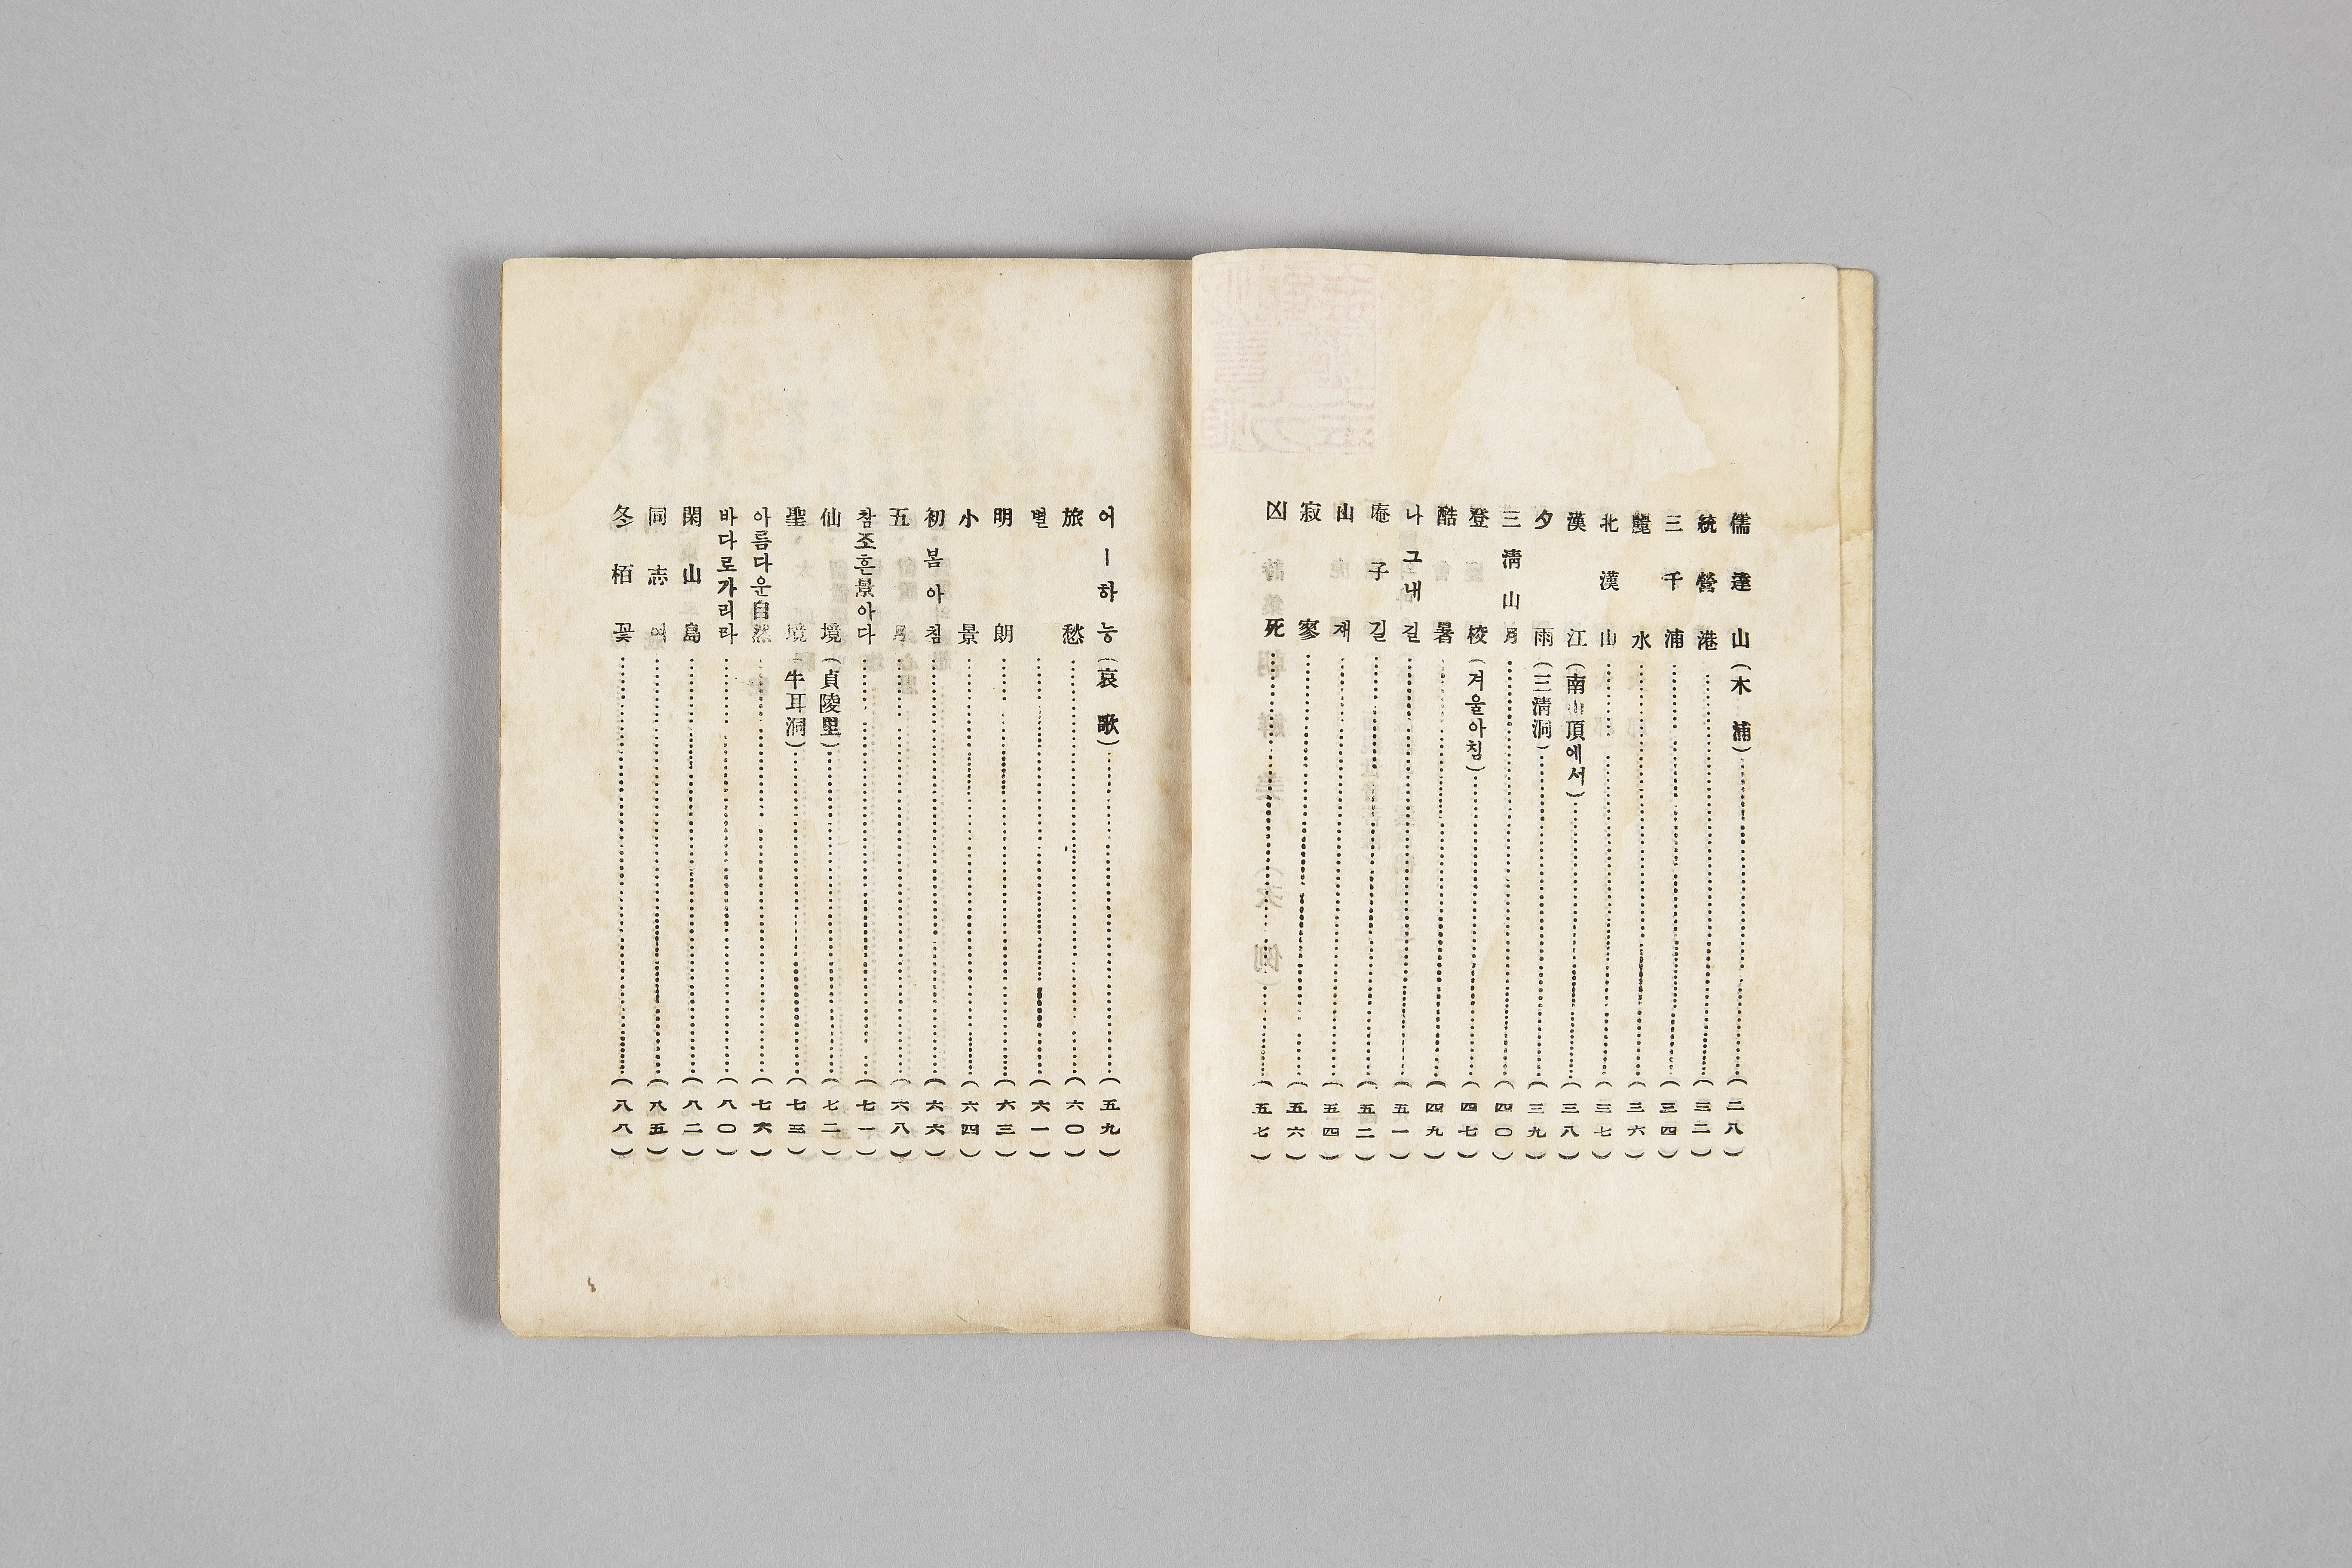 儒達山(木浦)(二八)
統營港(三二)
三千浦(三四)
麗水(三六)
北漢山(三七)
漢江(南山頂에서)(三八)
夕雨(三淸洞)(三九)
三淸山月(四〇)
登校(겨울아침)(四七)
酷暑(四九)
나그내길(五一)
庵子길(五二)
山재(五四)
寂寥(五六)
凶死(五七)
어ㅣ하능(哀歌)(五九)
旅愁(六〇)
별(六一)
明朗(六三)
小景(六四)
初봄아침(六六)
五月(六八)
참조흔景아다(七一)
仙境(貞陵里)(七二)
聖境(牛耳洞)(七三)
아름다운自然(七六)
바다로가리라(八〇)
閑山島(八二)
同志여(八五)
冬栢꽃(八八)